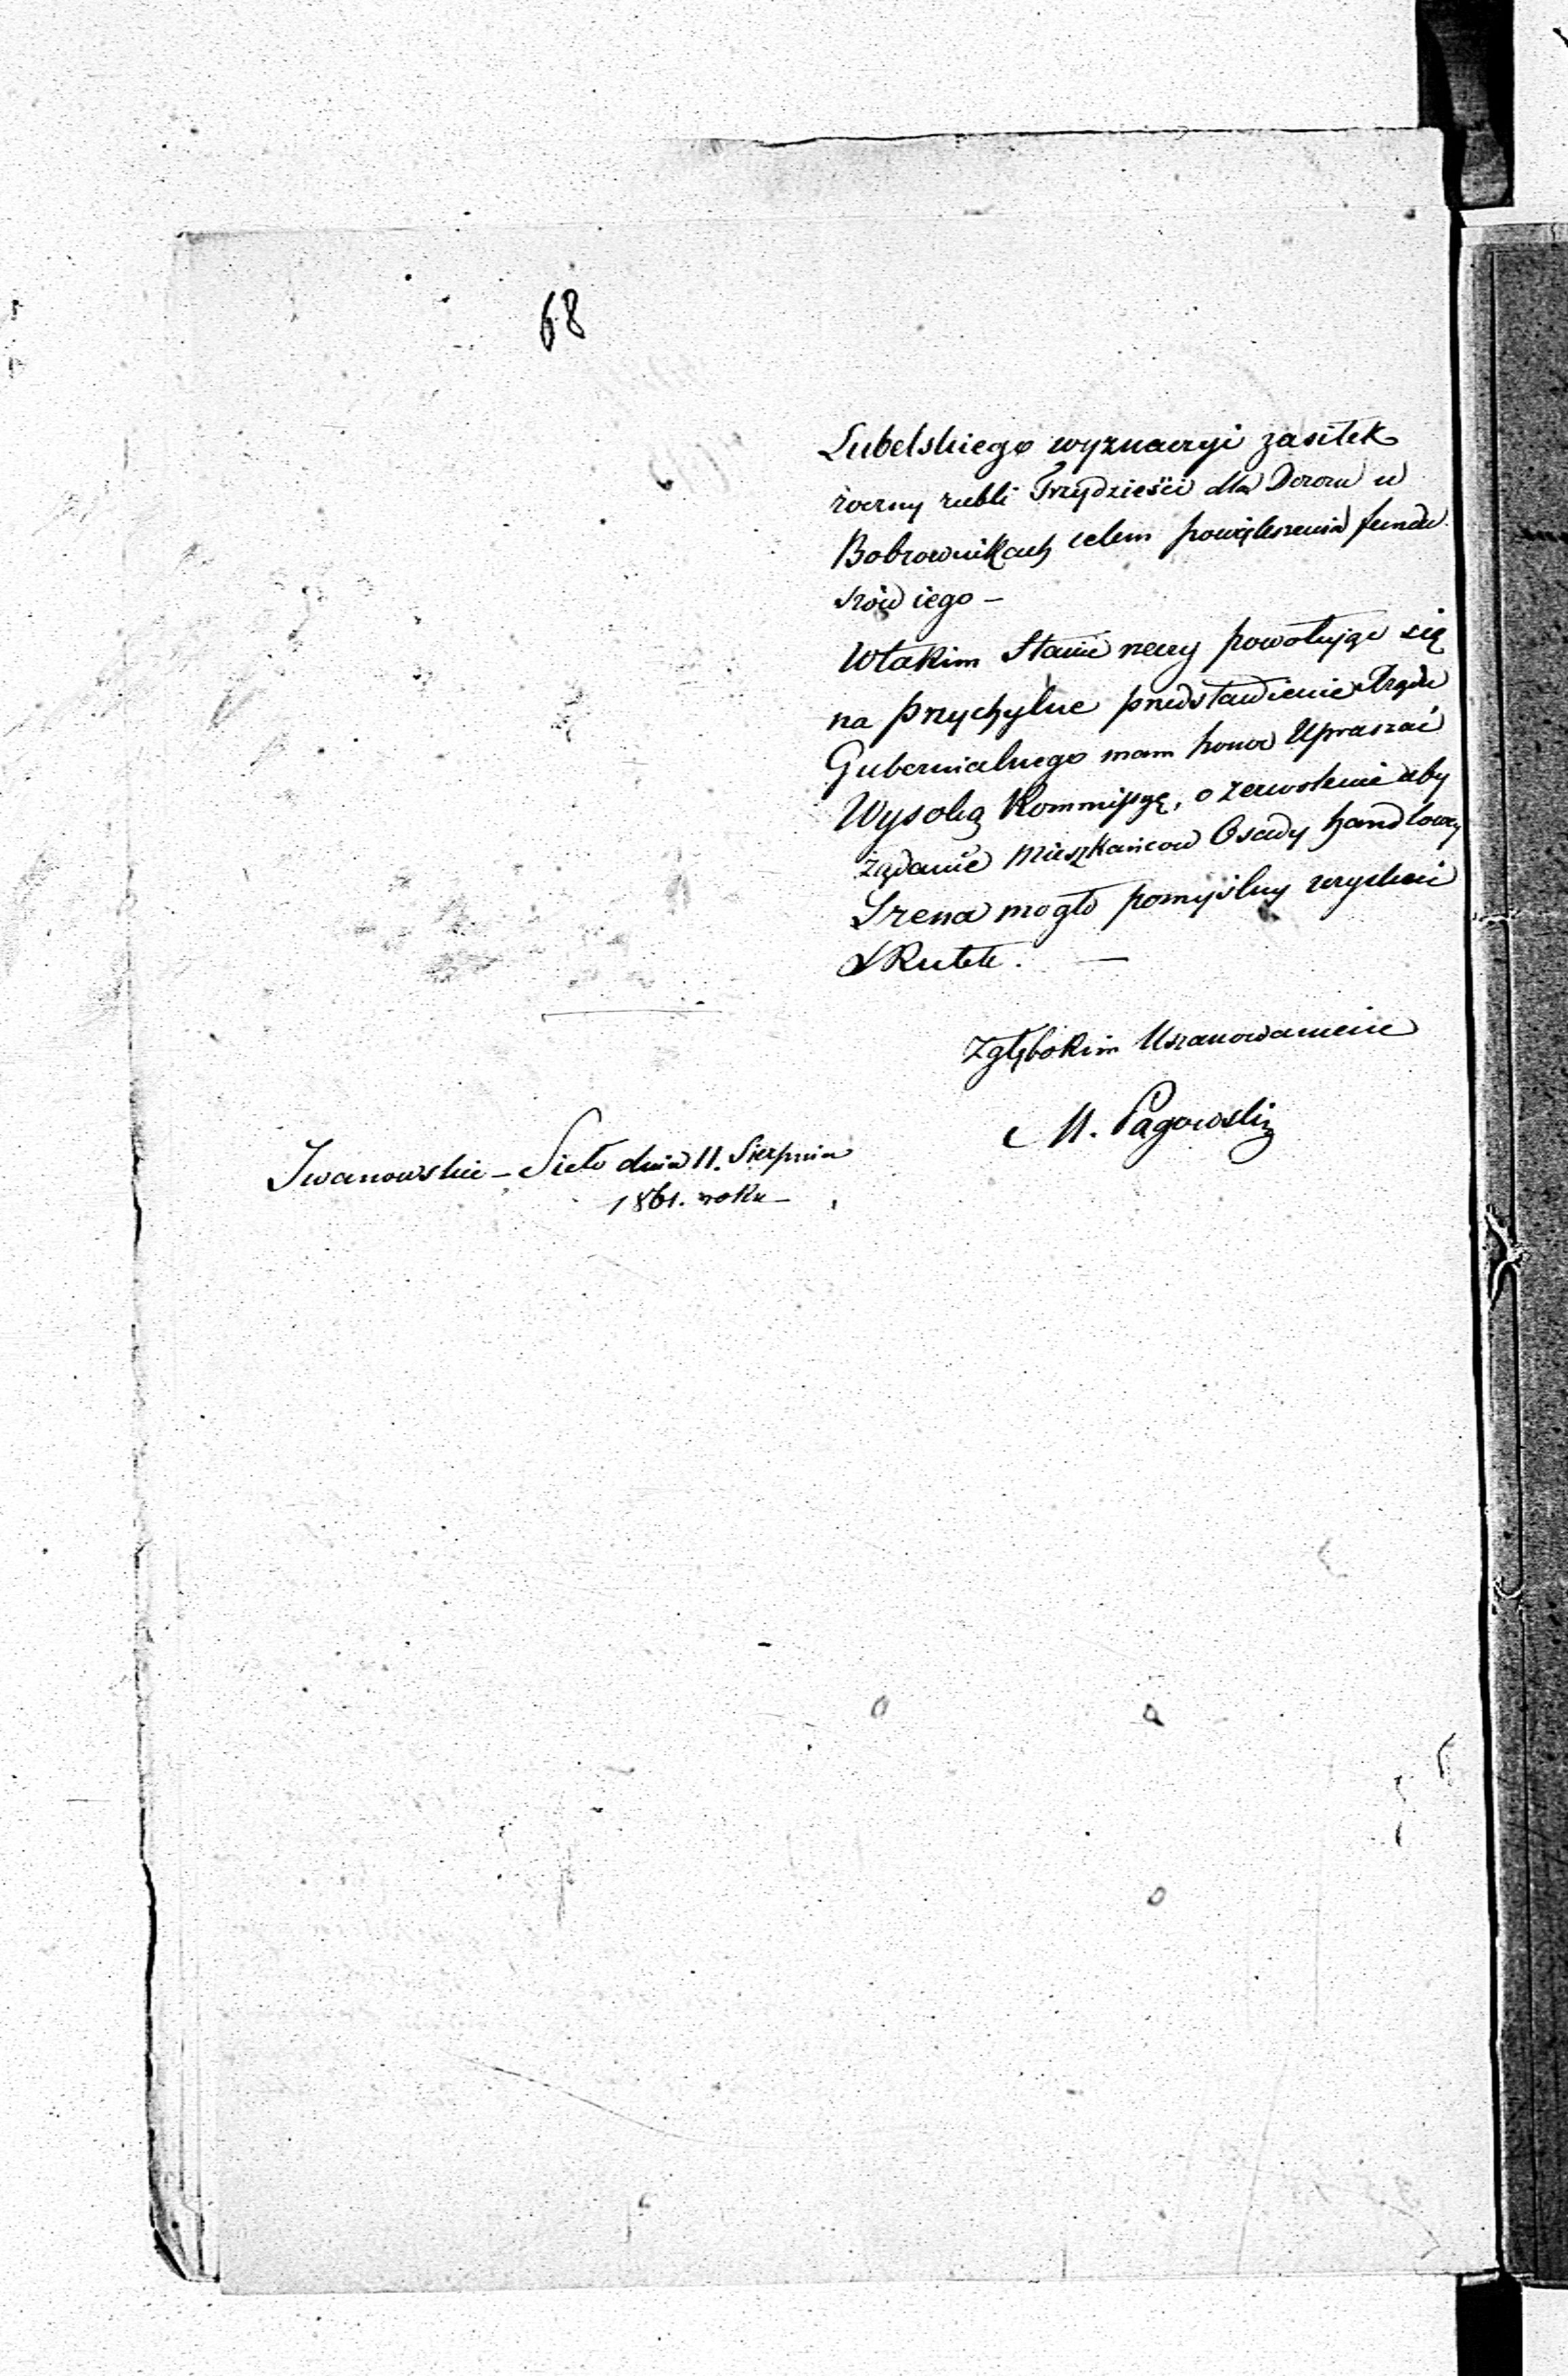 68
Lubelskiego wyznaczyć zasiłek
roczny rubli Trzydzieści dla Dozoru w
Bobrownikach celem powiększenia fundu
szów iego –
Wtakim Stanie rzeczy powołując się
na przychylne przedstawienie Rządu
Gubernialnego mam honor Upraszać
Wysoką Kommissyę, o zezwolenie aby
żądanie Mieszkańcow Osady handlowey
Irena mogło pomyślny uzyskać
skutek. —
Zgłębokim Uszanowaniem
M. Pągowski
Iwanowskie – Sieło dnia 11. Sierpnia
1861. roku –